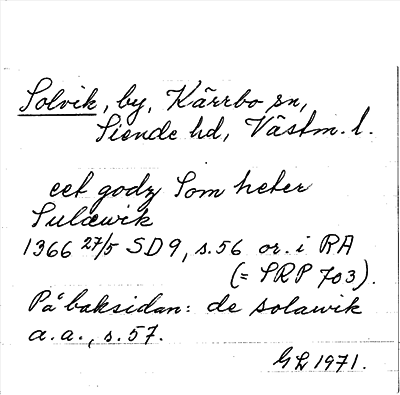 Solvik, by, Kärrbo sn,
Siende hd, Västm. l.
eet godz Som heter
Sulawik
1366 27/5 SD9, s.56 or. i RA
(= SRP 703).
På baksidan: de solawik
a.a., s.57.
GL 1971.